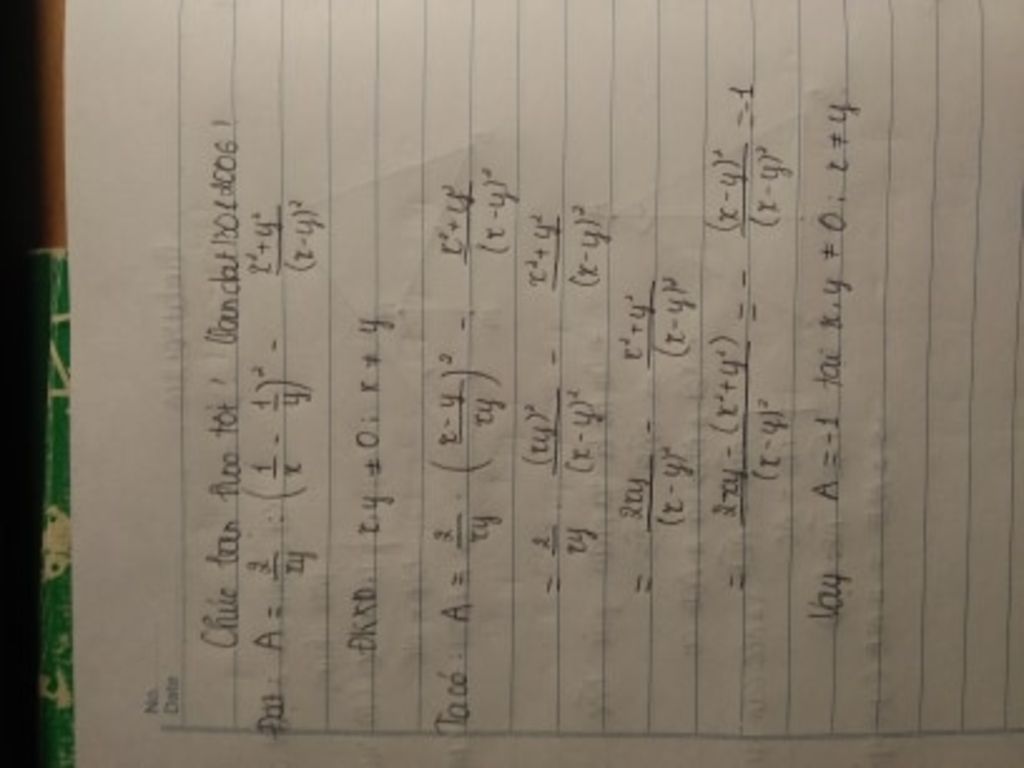 No.
Date
Chúc bạn học tốt!
Đặt: A = 2/xy : (1/x - 1/y)² - x²+y²/(x-y)²
ĐKXĐ: x.y ≠ 0; x ≠ y
Ta có: A = 2/xy : (x-y/xy)² - x²+y²/(x-y)²
= 2/xy . (xy)²/(x-y)² - x²+y²/(x-y)²
= 2xy/(x-y)² - x²+y²/(x-y)²
= 2xy-(x²+y²)/(x-y)² = - (x-y)²/(x-y)² = -1
Vậy A = -1 tại x.y ≠ 0; x ≠ y